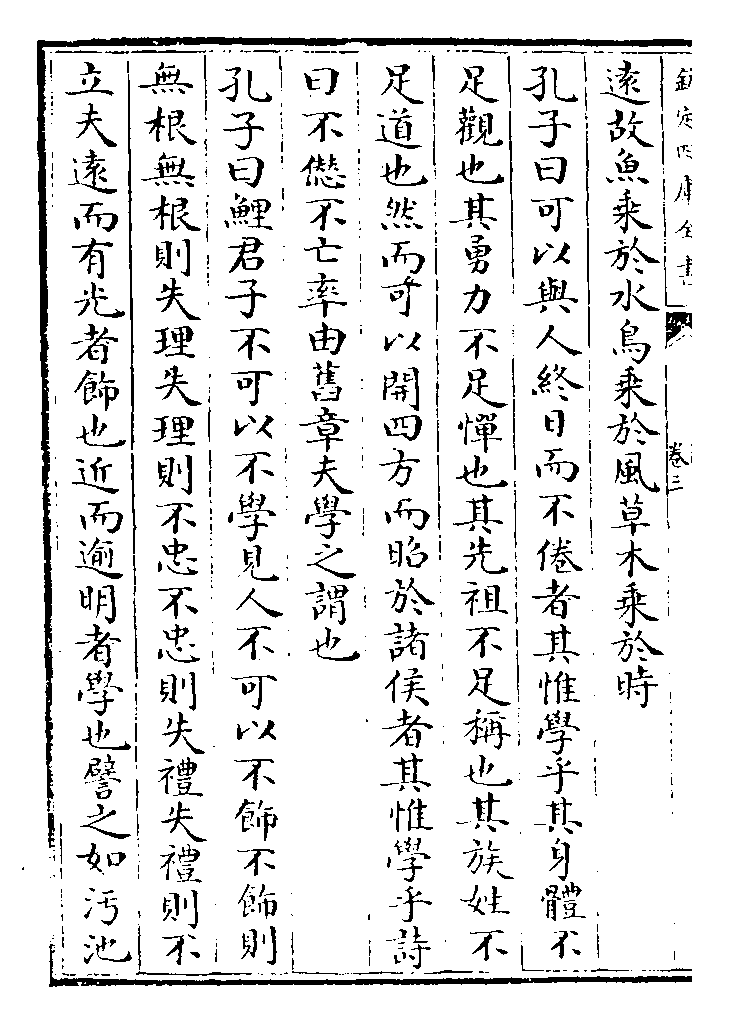 欽定四庫全書
卷三
遠故魚乘於水鳥乘於風草木乘於時
孔子曰可以與人終日而不倦者其惟學乎其身體不
足觀也其勇力不足憚也其先祖不足稱也其族姓不
足道也然而可以開四方而昭於諸侯者其惟學乎詩
曰不愆不亡率由舊章夫學之謂也
孔子曰鯉君子不可以不學見人不可以不飾不飾則
無根無根則失理失理則不忠不忠則失禮失禮則不
立夫遠而有光者飾也近而逾明者學也譬之如汚池